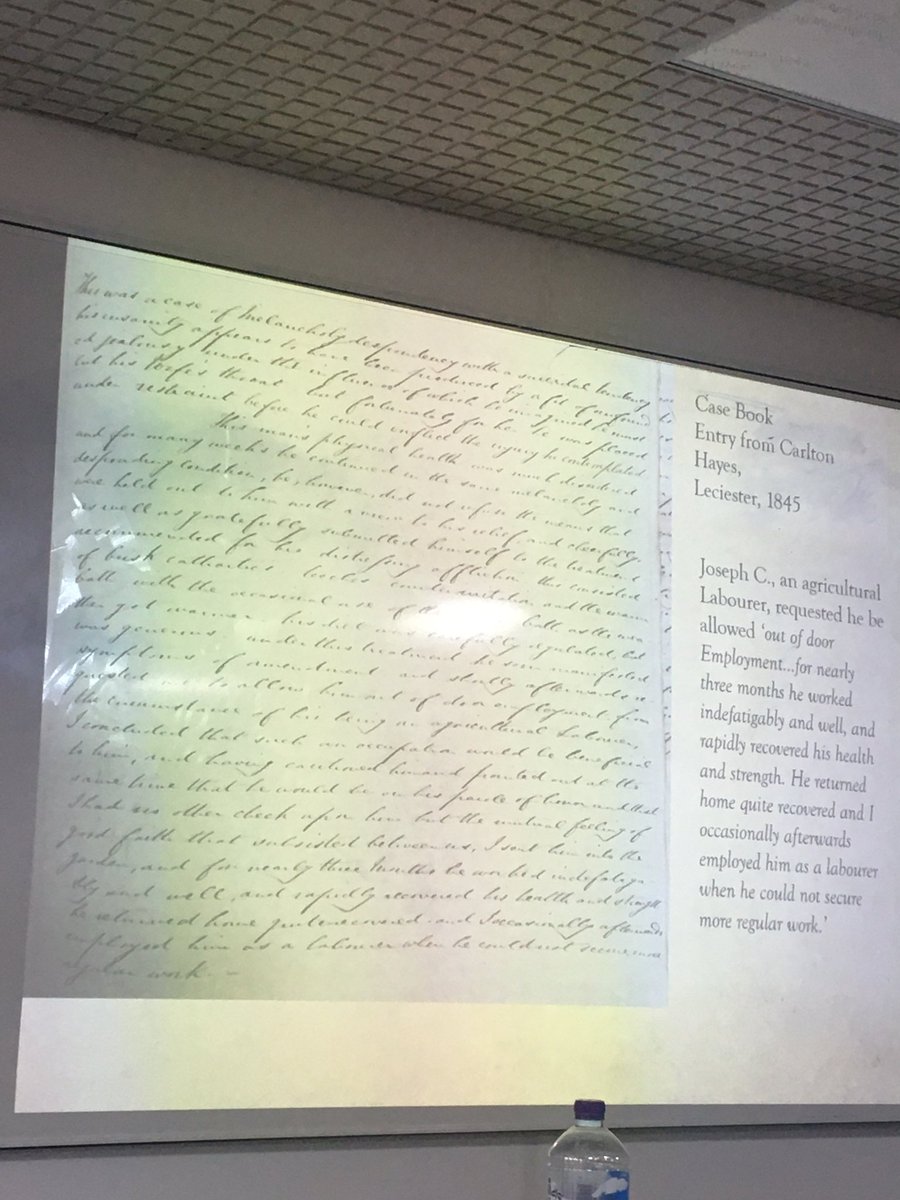 This was a case of Melancholy despondency with a suicidal tendency
his insanity appears to have been produced by a fit of unfound
ed jealousy under the influence of which he imagined he must
cut his Wife's throat but fortunately for her he was placed
under restraint before he could inflict the injury he contemplated
This man's physical health was much disordered
and for many weeks he continued in the same melancholy and
desponding condition, he, however, did not refuse the means that
were held out to him with a view to his relief, and cheerfully
as well as gratefully submitted himself to the treatment
recommended for his distressing affliction this consisted
of brisk cathartics leeches counter irritation and the warm
bath with the occasional use of the bath, as the
then got warmer his diet was carefully regulated, but
was generous, under this treatment he soon manifested
symptoms of amendment and shortly afterwards re
quested me to allow him out of door employment from
the circumstance of his being an agricultural Labourer,
I concluded that such an occupation would be beneficial
to him, and having cautioned him and pointed out at the
same time that he would be on his parole of honor and that
I had no other check upon him but the mutual feeling of
good faith that subsisted between us, I sent him into the
garden, and for nearly three months he worked indefatiga
bly and well, and rapidly recovered his health and strength
he returned home quite recovered and I occasionally afterwards
employed him as a labourer when he could not secure more
regular work. –
Case Book
Entry from Carlton
Hayes,
Leciester, 1845
Joseph C., an agricultural
Labourer, requested he be
allowed ‘out of door
Employment...for nearly
three months he worked
indefatigably and well, and
rapidly recovered his health
and strength. He returned
home quite recovered and I
occasionally afterwards
employed him as a labourer
when he could not secure
more regular work.’